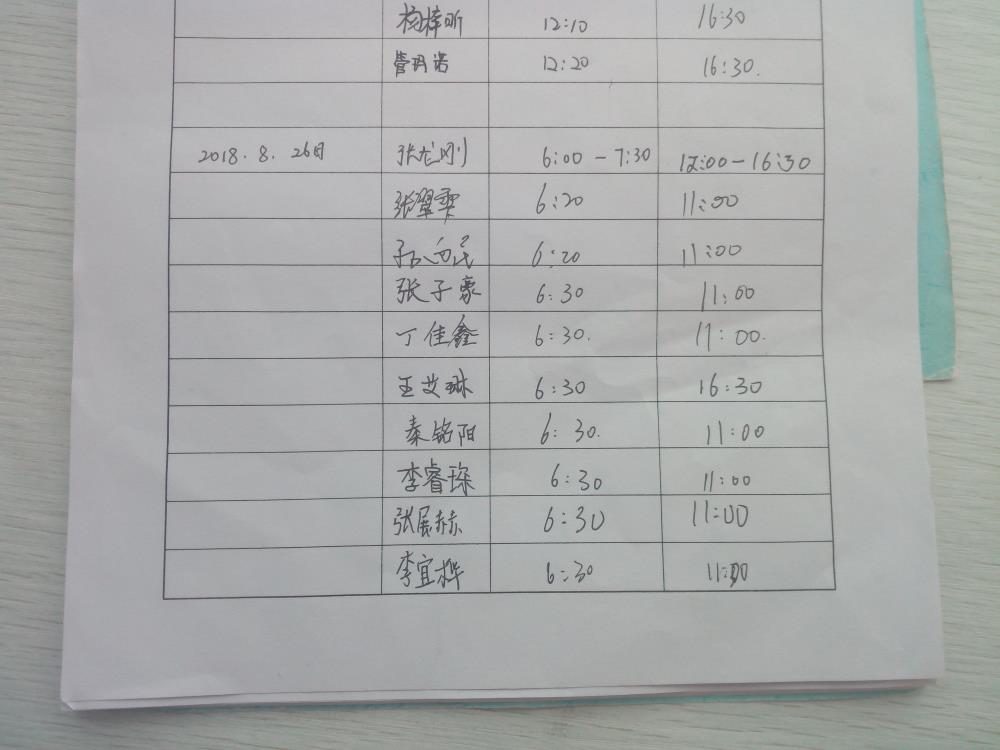 杨梓昕 12:10 16:30
管玥诺 12:20 16:30.
2018.8.26日 张龙刚 6:00-7:30 12:00-16:30
张翟雯 6:20 11:00
6:20 11:00
张子豪 6:30 11:00
丁佳鑫 6:30. 11:00.
王艾琳 6:30 16:30
秦铭阳 6:30. 11:00
李睿琛 6:30 11:00
张展赫 6:30 11:00
李宜桦 6:30 11:00